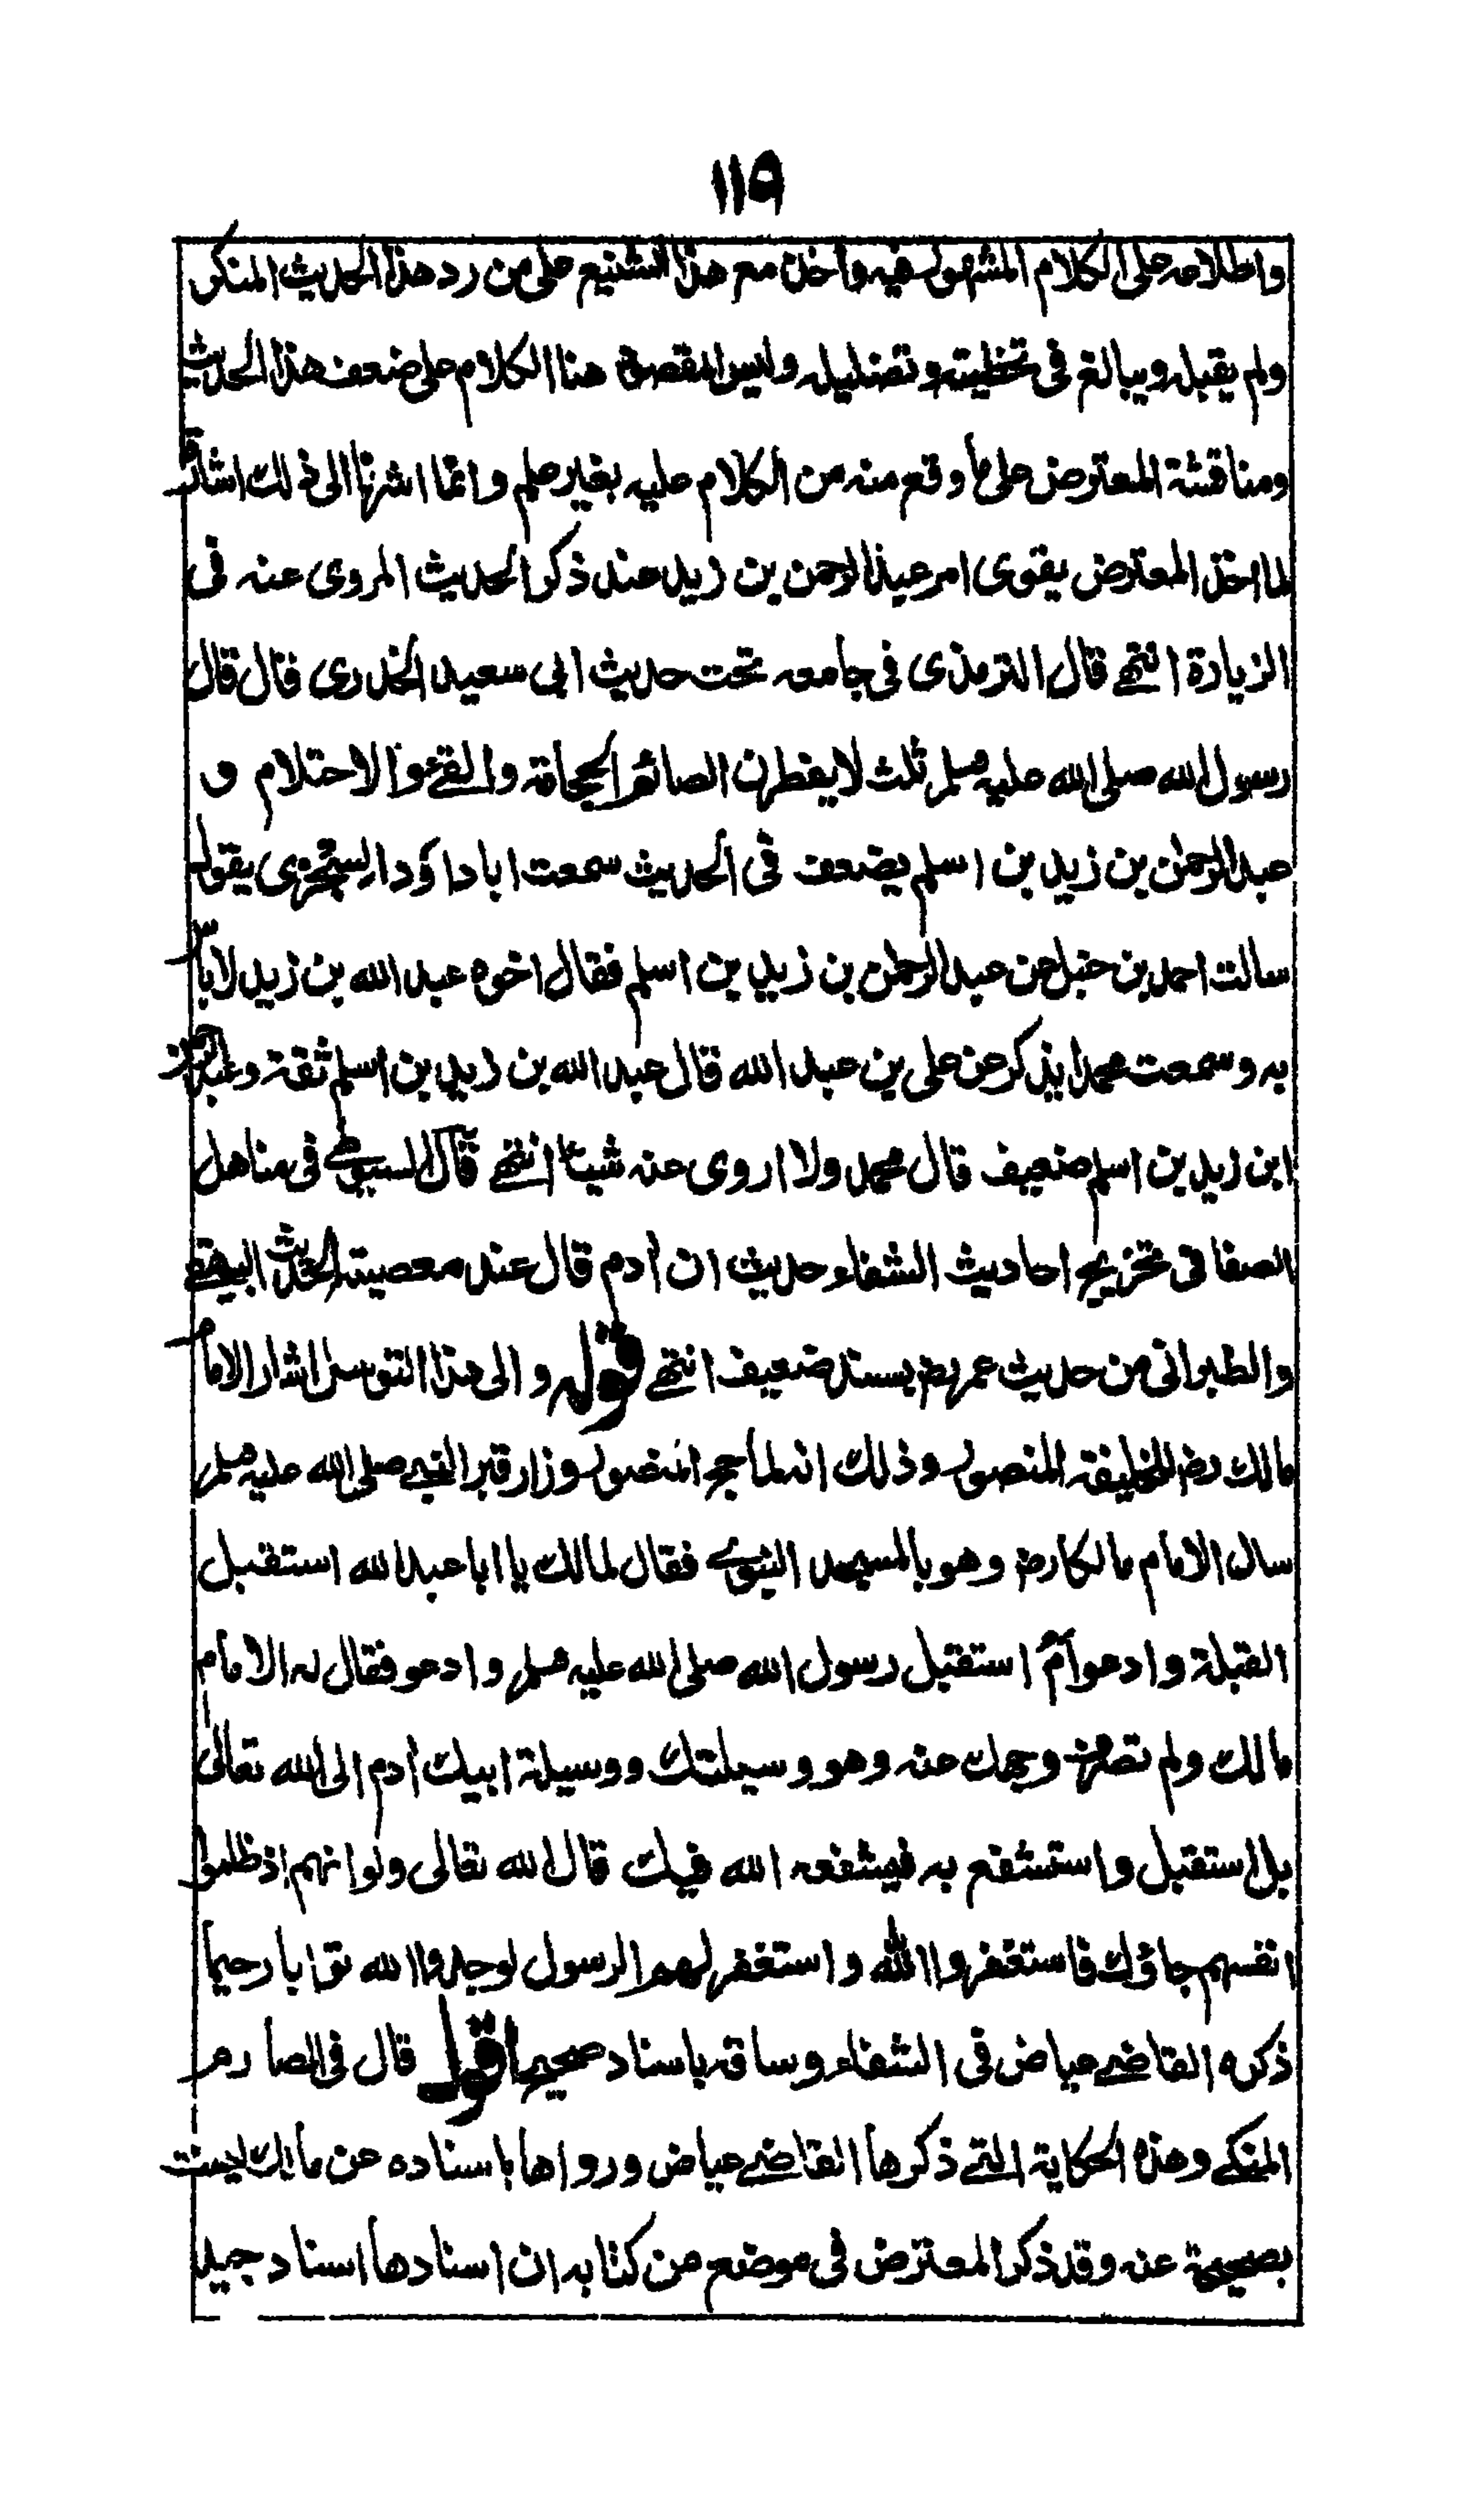 ١١٥
واطلاعه على الكلام المشهور فيه واخذ مع هذا التشنيع على من رد هذا الحديث المنكر
ولم يقبله ويبالغ فى تخطيته وتضليله وليس المقصود هنا الكلام على ضعف هذا الحديث
ومناقشة المعترض على ما وقع منه من الكلام عليه بغير علم وانما اشرنا الى ذلك اشارة
لما اخذ المعترض يقوى امر عبد الرحمن بن زيد عند ذكر الحديث المروى عنه فى
الزيادة انتهى قال الترمذى فى جامعه تحت حديث ابى سعيد الخدرى قال قال
رسول الله صلى الله عليه وسلم ثلث لا يفطرن الصائم الحجامة والقئ والاحتلام و
عبد الرحمن بن زيد بن اسلم يضعف فى الحديث سمعت ابا داؤد السجزى يقول
سالت احمد بن حنبل عن عبد الرحمن بن زيد بن اسلم فقال اخوه عبد الله بن زيد لا باس
به وسمعت محمدا يذكر عن على بن عبد الله قال عبد الله بن زيد بن اسلم ثقة وعبد الرحمن
ابن زيد بن اسلم ضعيف قال محمد ولا اروى عنه شيئا انتهى قال السيوطى فى مناهل
الصفا فى تخريج احاديث الشفاء حديث ان ادم قال عند معصيته الحديث البيهقى
والطبرانى من حديث عمر رض بسند ضعيف انتهى قوله والى هذا التوسل اشار الامام
مالك رض للخليفة المنصور وذلك انه لما حج المنصور وزار قبر النبى صلى الله عليه وسلم
سال الامام مالكا رض وهو بالمسجد النبوى فقال لمالك يا ابا عبد الله استقبل
القبلة وادعو ام استقبل رسول الله صلى الله عليه وسلم وادعو فقال له الامام
مالك ولم تصرف وجهك عنه وهو وسيلتك ووسيلة ابيك ادم الى الله تعالى
بل استقبل واستشفع به فيشفعه الله فيك قال الله تعالى ولو انهم اذ ظلموا
انفسهم جاؤك فاستغفروا الله واستغفر لهم الرسول لوجدوا الله توابا رحيما
ذكره القاضى عياض فى الشفاء وساقه باسناد صحيح اقول قال فى الصارم
المنكى وهذه الحكاية التى ذكرها القاضى عياض ورواها باسناده عن مالك ليست
بصحيحة عنه وقد ذكر المعترض فى موضع من كتابه ان اسنادها اسناد جيد